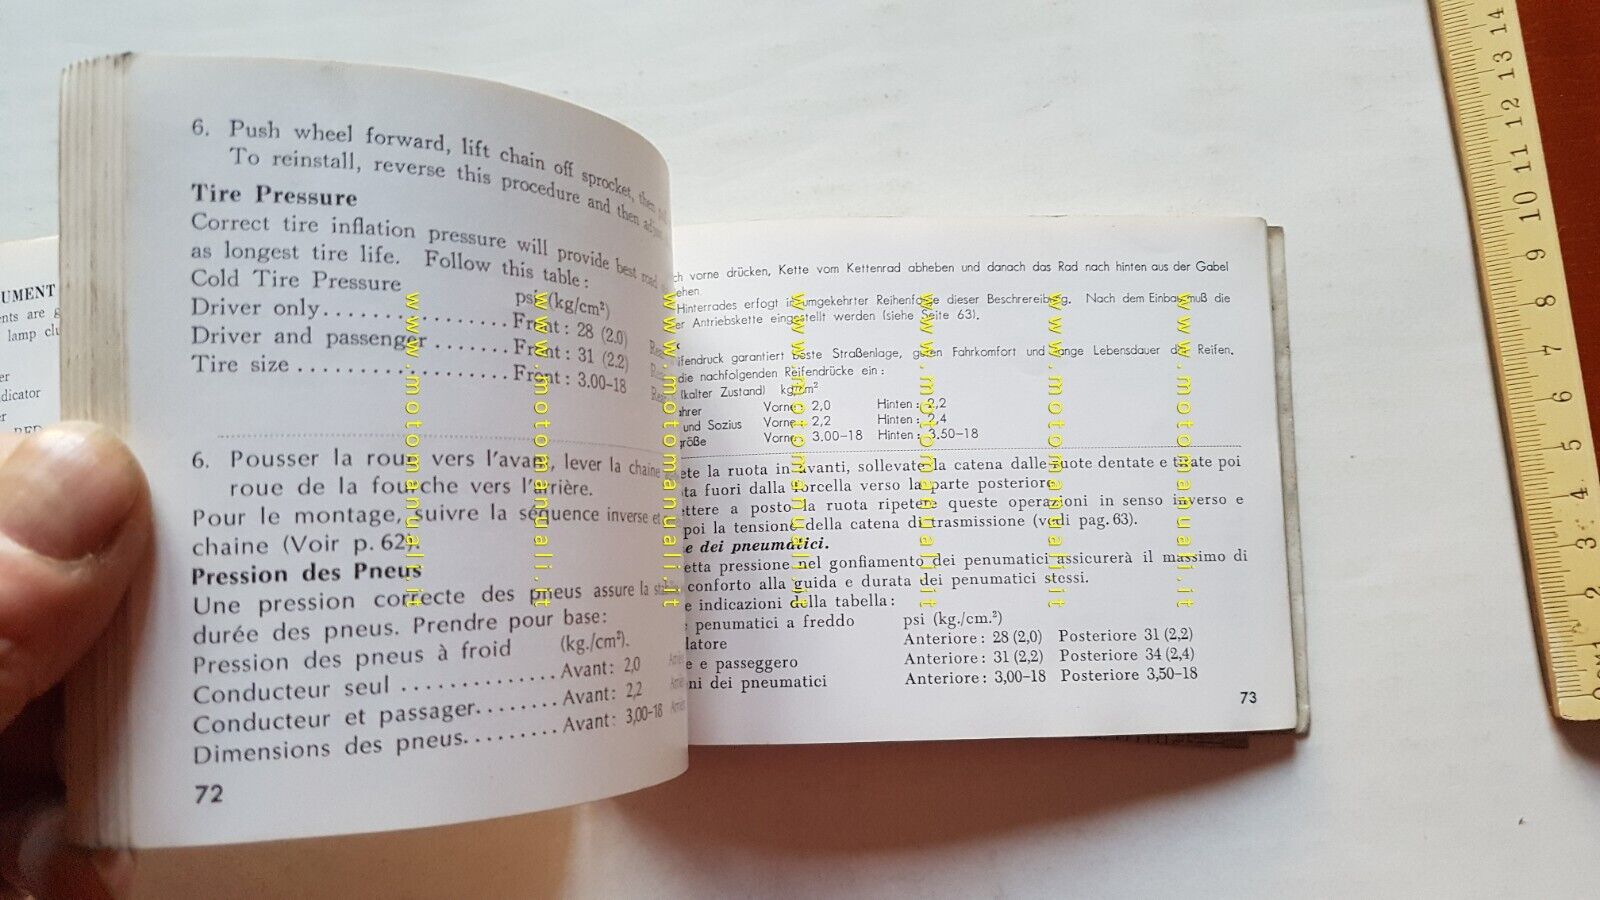 UMENT
nts are g
lamp clu
er
dicator
er
RED
6. Push wheel forward, lift chain off sprocket, then
To reinstall, reverse this procedure and then adju
Tire Pressure
Correct tire inflation pressure will provide best road
as longest tire life. Follow this table:
Cold Tire Pressure psi (kg/cm²)
Driver only................Front: 28 (2.0)
Driver and passenger.......Front: 31 (2.2)
Tire size ..................Front: 3.00-18
6. Pousser la roue vers l'avant, lever la chaine
roue de la fourche vers l'arrière.
Pour le montage, suivre la séquence inverse et
chaine (Voir p. 62).
Pression des Pneus
Une pression correcte des pneus assure la
durée des pneus. Prendre pour base:
Pression des pneus à froid (kg./cm²).
Conducteur seul ..............Avant: 2,0
Conducteur et passager........Avant: 2,2
Dimensions des pneus.........Avant: 3,00-18
72
ch vorne drücken, Kette vom Kettenrad abheben und danach das Rad nach hinten aus der Gabel
ehen.
Hinterrades erfogt in umgekehrter Reihenfolge dieser Beschrereibung. Nach dem Einbau muß die
er Antriebskette eingestellt werden (siehe Seite 63).
k
ifendruck garantiert beste Straßenlage, guten Fahrkomfort und lange Lebensdauer der Reifen.
die nachfolgenden Reifendrücke ein:
(kalter Zustand) kg/cm²
ahrer Vorne: 2,0 Hinten: 2,2
und Sozius Vorne: 2,2 Hinten: 2,4
größe Vorne: 3,00-18 Hinten: 3,50-18
ete la ruota in avanti, sollevate la catena dalle ruote dentate e tirate poi
ta fuori dalla forcella verso la parte posteriore.
ettere a posto la ruota ripetere queste operazioni in senso inverso e
poi la tensione della catena di trasmissione (vedi pag. 63).
e dei pneumatici.
etta pressione nel gonfiamento dei penumatici assicurerà il massimo di
conforto alla guida e durata dei penumatici stessi.
e indicazioni della tabella:
penumatici a freddo psi (kg./cm.²)
latore Anteriore: 28 (2,0) Posteriore 31 (2,2)
e e passeggero Anteriore: 31 (2,2) Posteriore 34 (2,4)
ni dei pneumatici Anteriore: 3,00-18 Posteriore 3,50-18
73
www.motomanuali.it
www.motomanuali.it
www.motomanuali.it
www.motomanuali.it
www.motomanuali.it
www.motomanuali.it
www.motomanuali.it
14
13
12
11
10
9
8
7
6
5
4
3
2